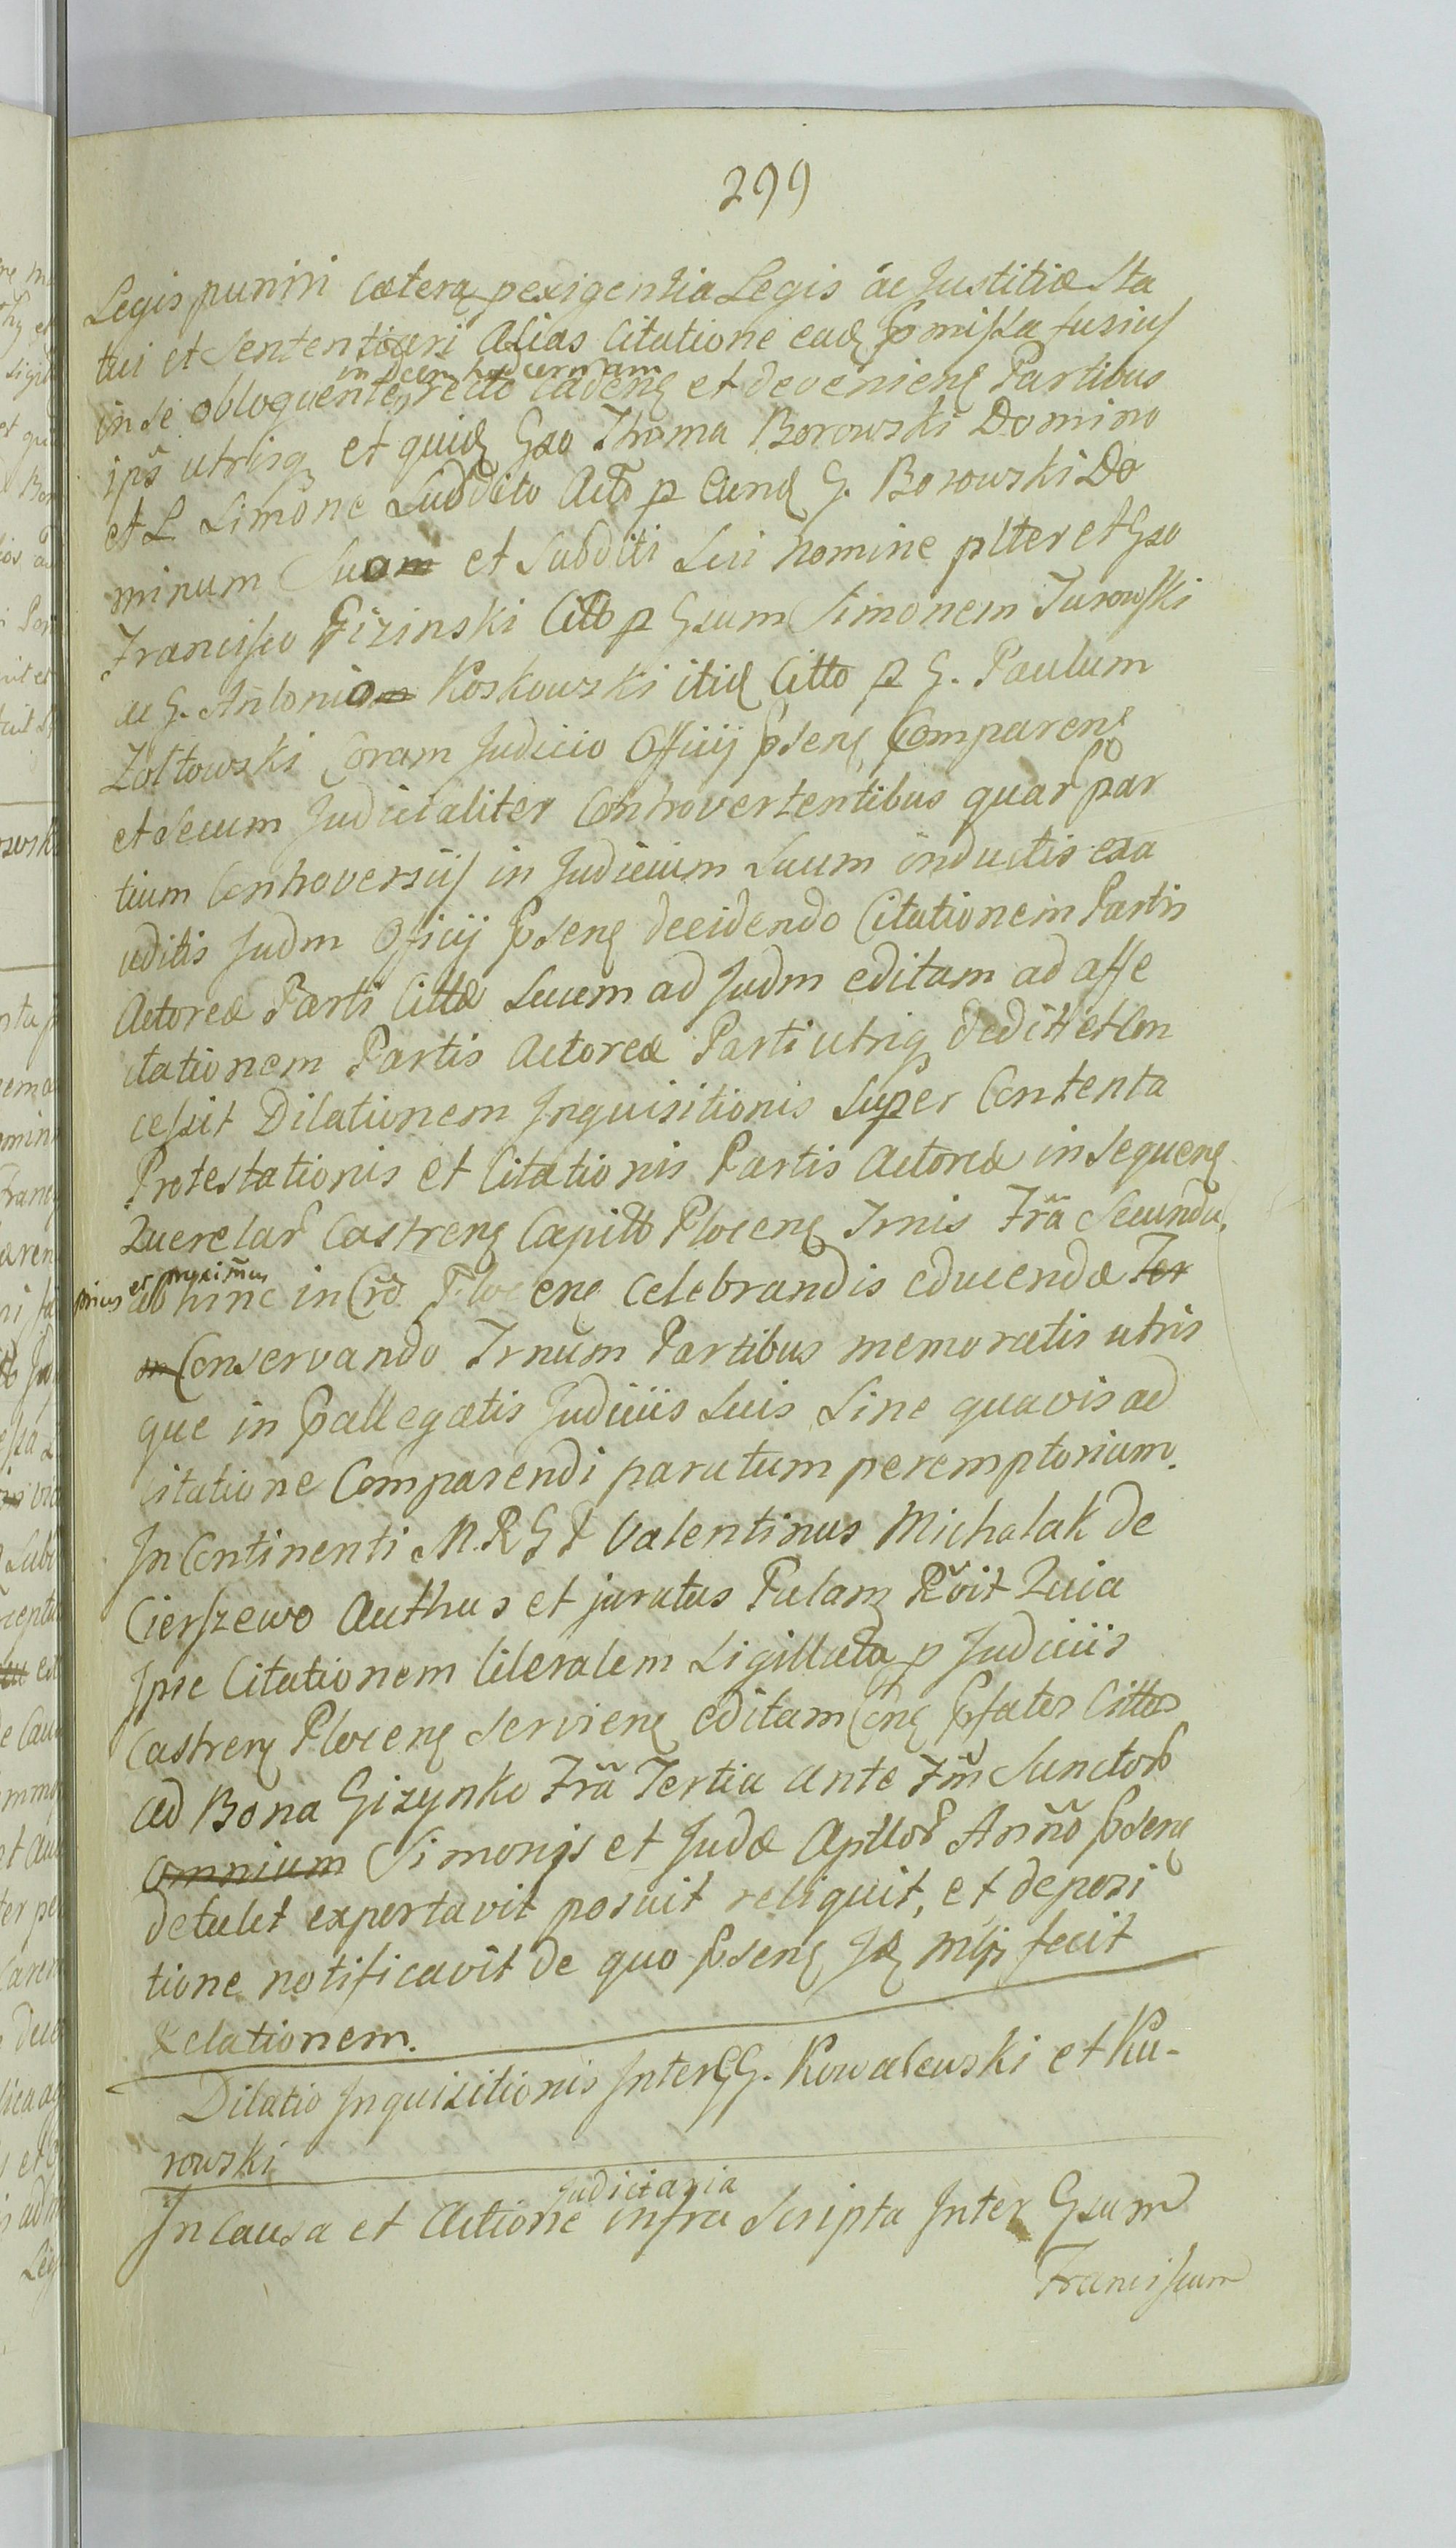 299
Legis puniri caeteraq pexigentia Legis ac Justitiae Sta
tui et Sententiari Alias Citatione eadq pmissa fusius
in diem hodiernam
in se obloquenten recto Cadenq et devenienq Partibus
ips utrisq et quidq Gso Thoma Borowski Domino
et L Simone Subdito Acto p Eundq G. Borowski Do
minum Suom et Subditi Sui nomine plter et Gso
Francisco Gizinski Citto p Gsum Simonem Turowski
ac G. Antonio Koskowski itidq Citto p G. Paulum
Zoltowski Coram Judicio Officij psenq Comparenq
et Secum Judicialiter Controvertentibus quar po par
tium Controversijs in Judicium Suum inductis exa
uditis Judm Officij psenq decidendo Citationem Partis
Actoreae Parti Cittae Secum ad Judm editam ad affe
ctationem Partis Actoreae Parti utriq dedit et Con
cessit Dilationem Inquisitionis Super Contenta
Protestationis et Citationis Partis Actoreae in sequenq
Querelar Castrenq Capitt Plocenq Trnis Fra Secunda
prius et proximus
ab hinc in Cro Plocenq Celebrandis educendae Ter
m Conservando Trnum Partibus memoratis utris
que in pallegatis Judiciis Suis Sine quavis ad
citatione Comparendi paratum peremptorium.
In Continenti M.R G P Valentinus Michalak de
Cierszewo Authus et juratus Palam Rvit Quia
Ipse Citationem literalem Sigillata p Judiciis
Castrenq Plocenq Servienq editam Cnq pfatos Cittos
ad Bona Gizynko Fra Tertia ante Fm Sanctor
omnium Simonis et Judae Apttor Anno psenq
detulit exportavit posuit reliquit, et deposi
tione notificavit de quo psenq Jq mlji fecit
Relationem.
Dilatio Inquisitionis Inter GG. Kowalewski et Ku-
rowski
Judiciaria
In Causa et Actione infra Scripta Inter Gsum
Franciscum